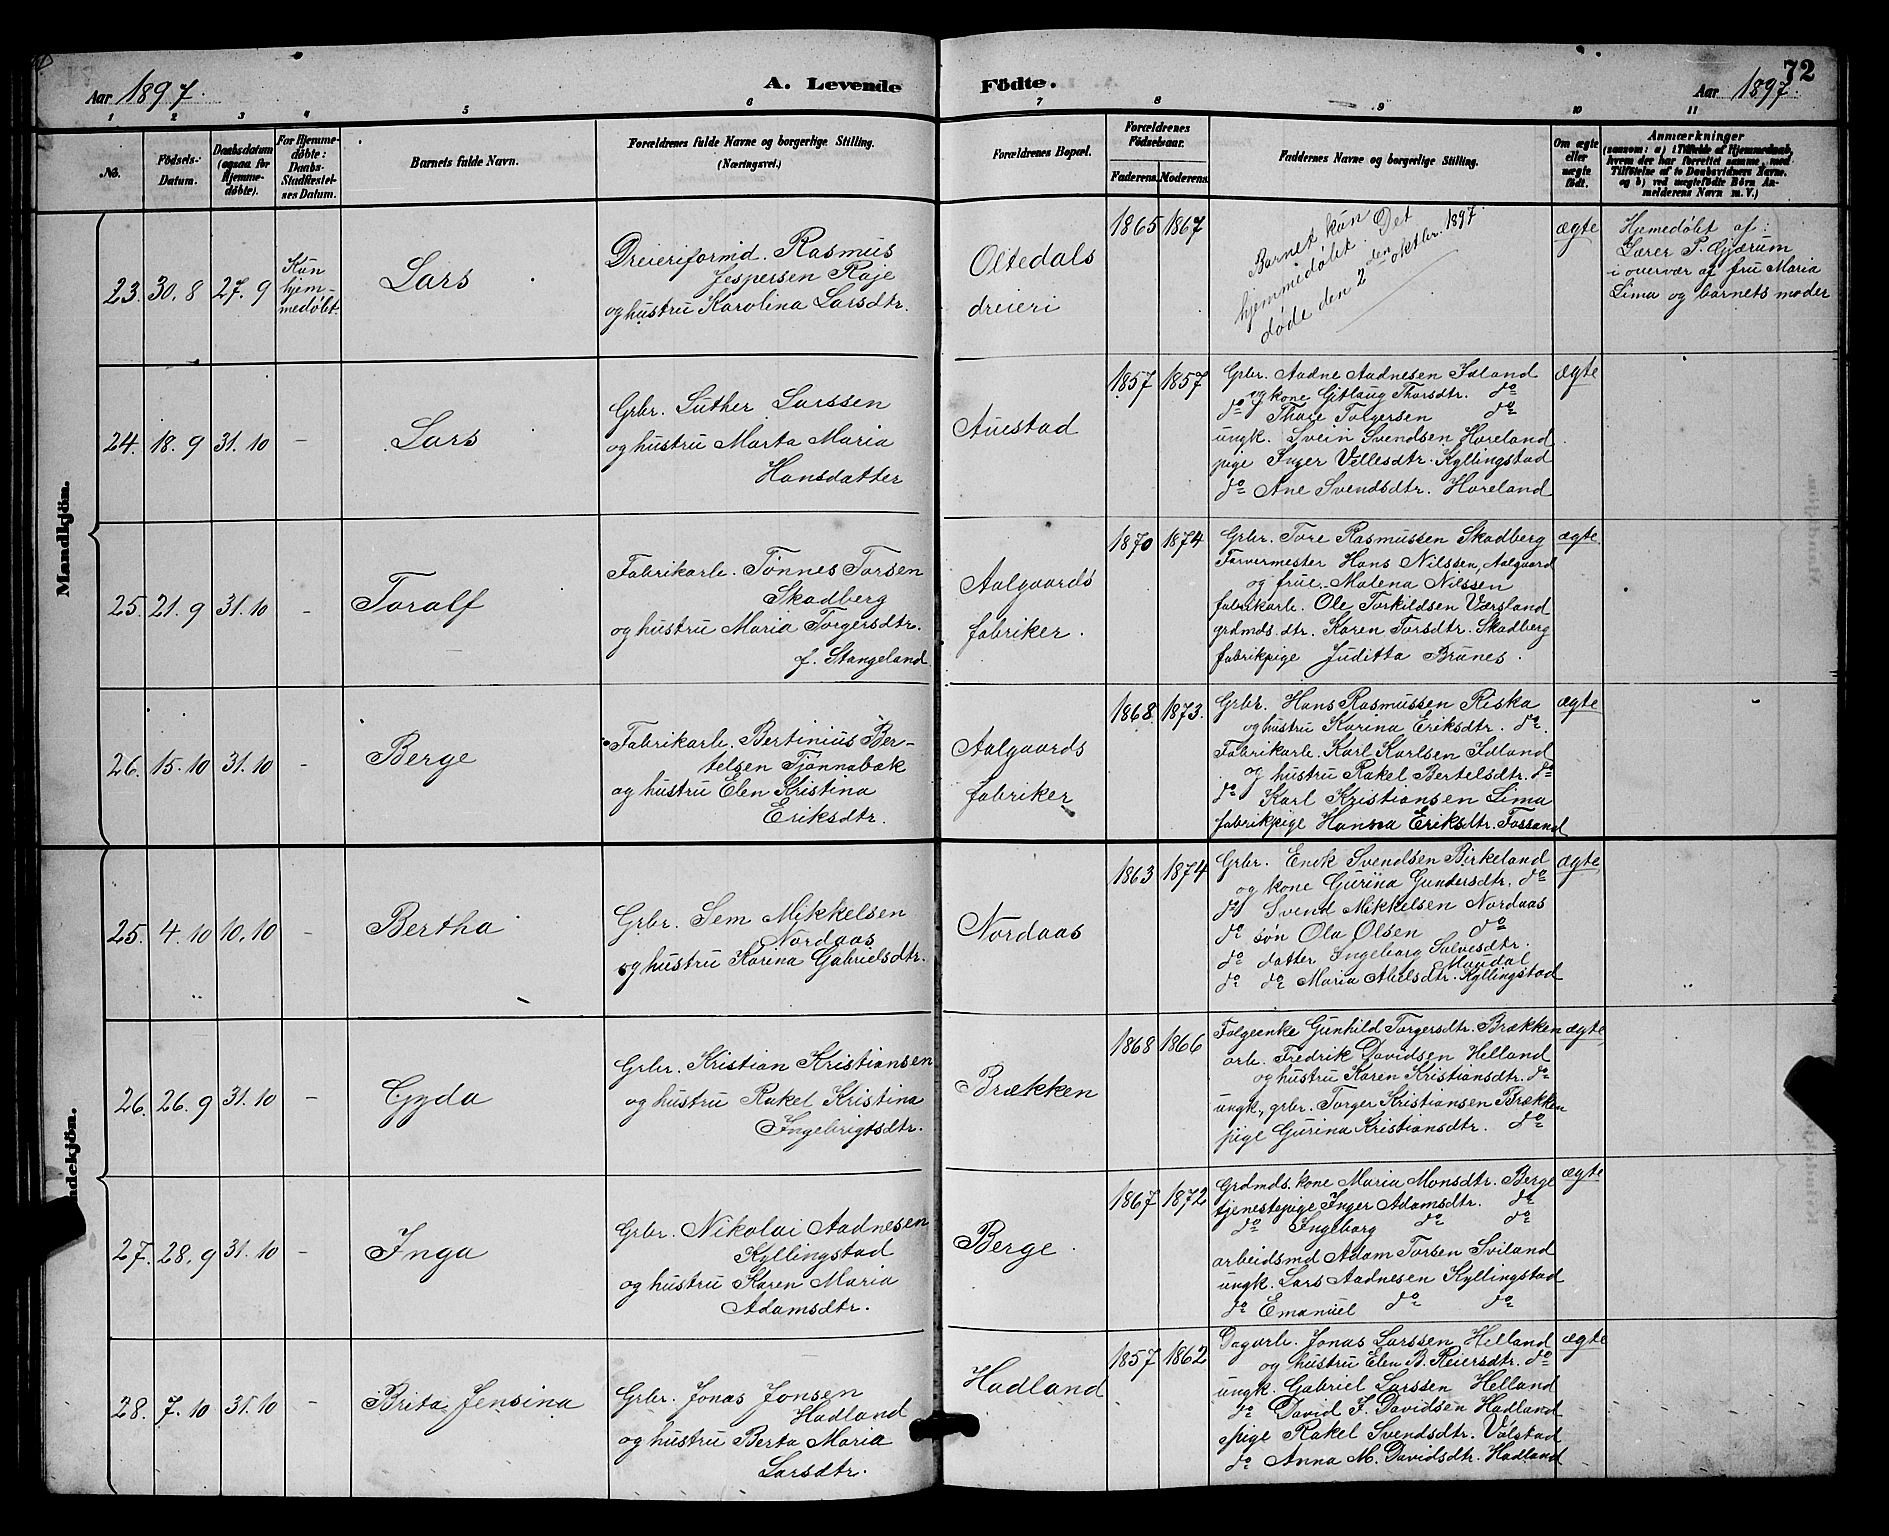 72
Aar 1897.
A. Levende Födte.
Aar 1897.
1 2 3 4 5 6 7 8 9 10 11
No.
Födsels-
Datum.
Daabsdatum
(ogsaa for
Hjemme-
døbte).
For Hjemme-
døbte:
Daabs-
Stadfæstel-
ses Datum.
Barnets fulde Navn.
Forældrenes fulde Navne og borgerlige Stilling.
(Næringsvei.)
Forældrenes Bopæl.
Forældrenes
Fødselsaar.
Faderens. Moderens.
Faddernes Navne og borgerlige Stilling.
Om ægte
eller
uægte
født.
Anmærkninger
(saasom: a) i Tilfælde af Hjemmedaab,
hvem der har forrettet samme, med
Tilføielse af to Daabsvidners Navne.
og b) ved uægtefødte Børn An-
melderens Navn m. V.)
Mandkjön.
23. 30. 8 27. 9
Kun
hjem-
medøbt.
Lars
Dreieriformd. Rasmus
Jespersen Raje
og hustru Karolina Larsdtr.
Oltedals
dreieri
1865 1867
Barnet kun
hjemmidøbt. Det
døde den 2den oktbr. 1897.
ægte
Hjemedøbt af:
Lærer P. Gjærum
i overvær af fru Maria
Lima og barnets moder
24. 18. 9 31. 10 -
Lars
Grbr. Luther Larssen
og hustru Marta Maria
Hansdatter
Auestad
1857 1857
Grbr. Aadne Aadnesen Idland
og kone Gitlaug Thorsdtr. do
do Thore Tolgersen do
ungk. Svein Svendsen Horeland
pige Inger Vellesdtr. Kyllingstad
do Ane Svendsdtr. Horeland
ægte
25. 21. 9 31. 10 -
Toralf
Fabrikarb. Tønnes Torsen
Skadberg
og hustru Maria Torgersdtr.
f. Stangeland
Aalgaards
fabriker.
1870 1874
Grbr. Tore Rasmussen Skadberg
Farvermester Hans Nilssen, Aalgaard
og frue Malena Nilssen
fabrikarb. Ole Torkildsen Værsland
grdmds. dtr. Karen Torsdtr. Skadberg
fabrikpige Juditta Brunes.
ægte
26. 15. 10 31. 10 -
Berge
Fabrikarb. Bertinius Ber-
telsen Tjønnabæk
og hustru Elen Kristina
Eriksdtr.
Aalgaards
fabriker
1868. 1873.
Grbr. Hans Rasmussen Riska
og hustru Karina Eriksdtr. do.
Fabrikarb. Karl Karlsen Idland
og hustru Rakel Bertelsdtr. do
do Karl Kristiansen Lima
fabrikpige Hanna Eriksdtr. Fossand
ægte
ndekjön.
25. 4. 10 10. 10 -
Bertha
Grbr. Sem Mikkelsen
Nordaas
og hustru Karina Gabrielsdtr.
Nordaas
1863 1874
Grbr. Enok Svendsen Birkeland
og kone Gurina Gundersdtr. do
do Svend Mikkelsen Nordaas
do søn Ola Olsen do
do datter Ingeborg Salvesdtr.
Maudal
do do Maria Abelsdtr. Kyllingstad
ægte
26. 26. 9 31. 10 -
Gyda
Grbr. Kristian Kristiansen
og hustru Rakel Kristina
Ingebrigtsdtr.
Brækken
1868 1866
Folgeenke Gunhild Torgersdtr. Brækken
arb. Fredrik Davidsen Helland
og hustru Karen Kristiansdtr. do
ungk., grbr. Torger Kristiansen Brækken
pige Gurina Kristiansdtr. do
ægte
27. 28. 9 31. 10 -
Inga
Grbr. Nikolai Aadnesen
Kyllingstad
og hustru Karen Maria
Adamsdtr.
Berge
1867 1872
Grdmds. kone Maria Monsdtr. Berge
tjenestepige Inger Adamsdtr. do
do Ingeborg do do
arbeidsmd Adam Torsen Sviland
ungk. Lars Aadnesen Kyllingstad
do Emanuel do do
ægte
28. 7. 10 31. 10 -
Brita Jensina
Grbr. Jonas Jonsen
Hadland
og hustru Berta Maria
Larsdtr.
Hadland
1857 1862
Dagarb. Jonas Larssen Helland
og hustru Elen B. Reiersdtr. do
ungk. Gabriel Larssen Helland
do David J. Davidsen Hadland
pige Rakel Svendsdtr. Vølstad
do Anna M. Davidsdtr. Hadland
ægte